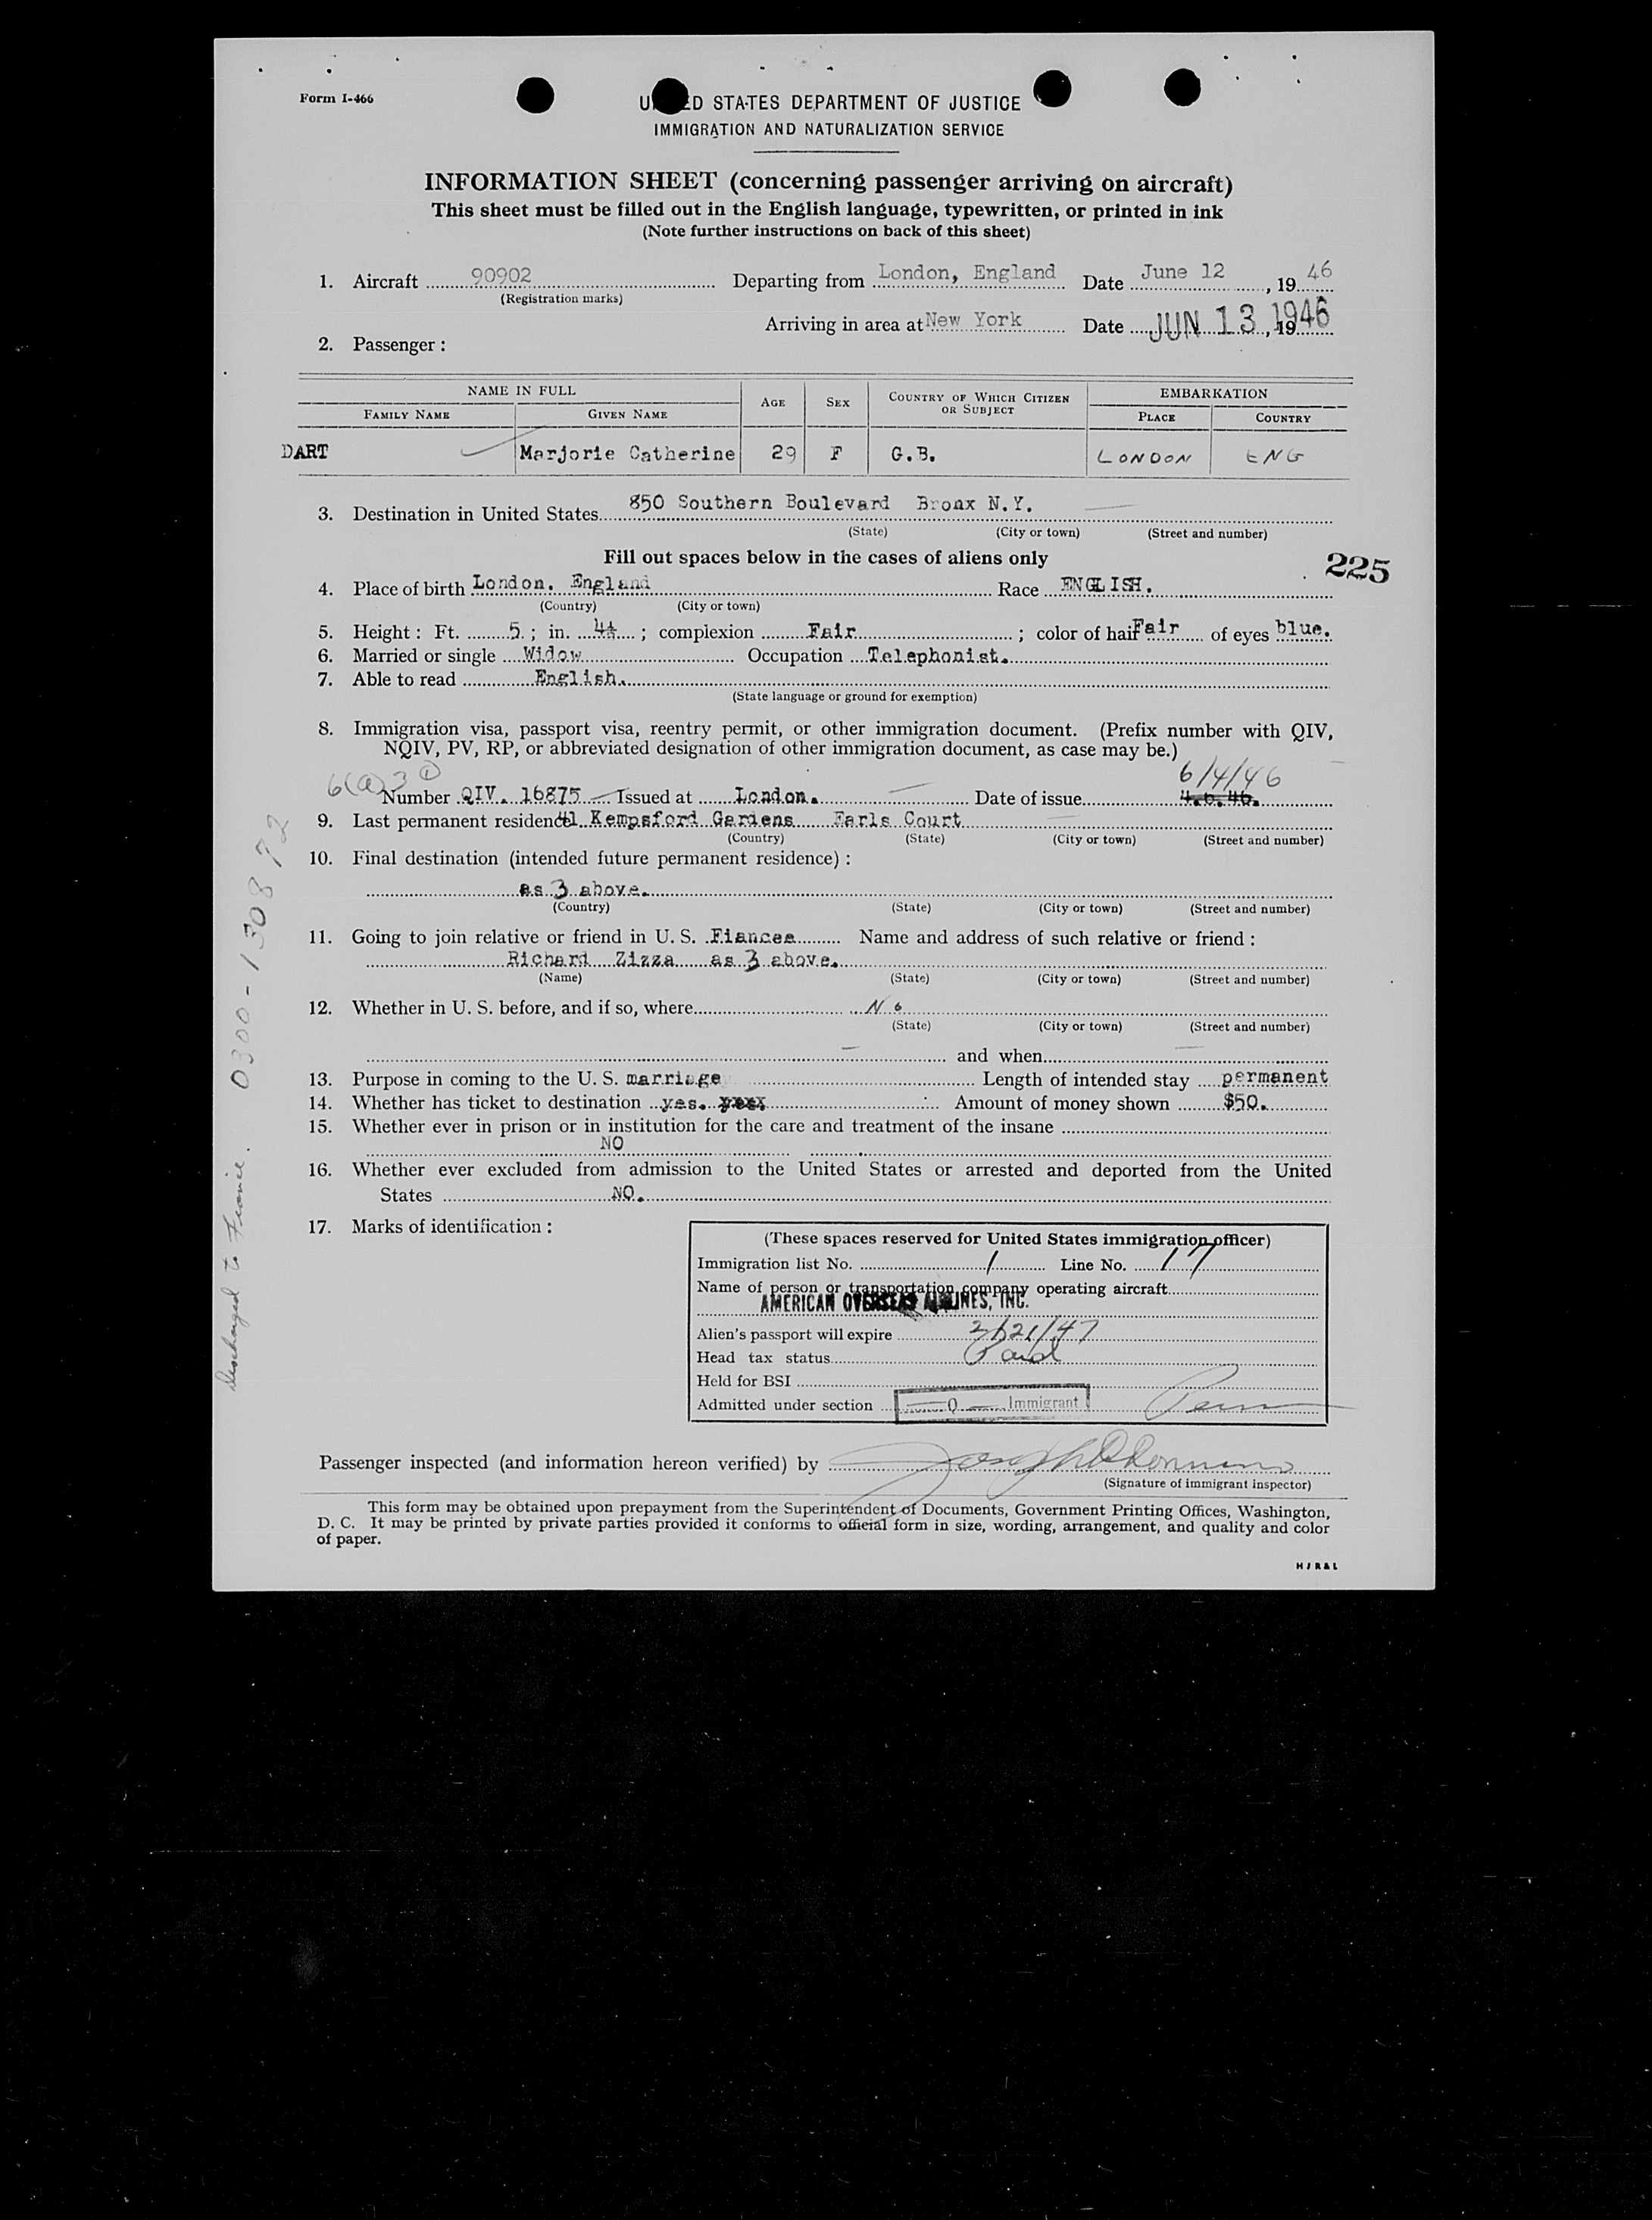 Form I-466
U  ED STATES DEPARTMENT OF JUSTICE
IMMIGRATION AND NATURALIZATION SERVICE
INFORMATION SHEET (concerning passenger arriving on aircraft)
This sheet must be filled out in the English language, typewritten, or printed in ink
(Note further instructions on back of this sheet)
1. Aircraft 90902 Departing from London, England Date June 12, 19 46
(Registration marks)
Arriving in area at New York Date JUN 13, 1946
2. Passenger:
NAME IN FULL AGE SEX COUNTRY OF WHICH CITIZEN OR SUBJECT EMBARKATION
FAMILY NAME GIVEN NAME PLACE COUNTRY
DART Marjorie Catherine 29 F G.B. LONDON ENG
3. Destination in United States 850 Southern Boulevard Bronx N.Y.
(State) (City or town) (Street and number)
Fill out spaces below in the cases of aliens only
225
4. Place of birth London. England Race ENGLISH.
(Country) (City or town)
5. Height: Ft. 5.; in. 4½; complexion Fair; color of hair Fair of eyes blue.
6. Married or single Widow Occupation Telephonist.
7. Able to read English.
(State language or ground for exemption)
8. Immigration visa, passport visa, reentry permit, or other immigration document. (Prefix number with QIV,
NQIV, PV, RP, or abbreviated designation of other immigration document, as case may be.)
6(a)3 ① 6/4/46
Number QIV. 16875 Issued at London. Date of issue 4.6.46.
9. Last permanent residence 41 Kempsford Gardens Earls Court
(Country) (State) (City or town) (Street and number)
10. Final destination (intended future permanent residence):
as 3 above.
(Country) (State) (City or town) (Street and number)
11. Going to join relative or friend in U. S. Fiancee Name and address of such relative or friend:
Richard Zizza as 3 above.
(Name) (State) (City or town) (Street and number)
12. Whether in U. S. before, and if so, where No
(State) (City or town) (Street and number)
and when
13. Purpose in coming to the U. S. marriage Length of intended stay permanent
14. Whether has ticket to destination yes. Amount of money shown $50.
15. Whether ever in prison or in institution for the care and treatment of the insane
NO
16. Whether ever excluded from admission to the United States or arrested and deported from the United
States NO.
17. Marks of identification:
(These spaces reserved for United States immigration officer)
Immigration list No. 1 Line No. 17
Name of person or transportation company operating aircraft
AMERICAN OVERSEAS AIRLINES, INC.
Alien's passport will expire 2/21/47
Head tax status Paid
Held for BSI
Admitted under section Q Immigrant
Passenger inspected (and information hereon verified) by
(Signature of immigrant inspector)
This form may be obtained upon prepayment from the Superintendent of Documents, Government Printing Offices, Washington,
D. C. It may be printed by private parties provided it conforms to official form in size, wording, arrangement, and quality and color
of paper.
H J R & L
Discharged to Fiancie. 0300-130872